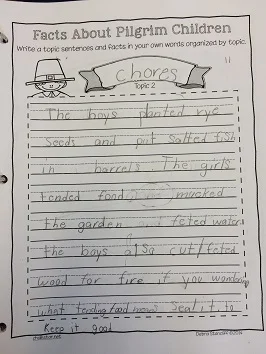 Facts About Pilgrim Children
Write a topic sentences and facts in your own words organized by topic.
chores
Topic 2
The boys planted rye
seeds and put salted fish
in barrels. The girls
tended food mucked
the garden feted water
the boys also cut/feted
wood for fire if you wondering
what tending food means seal it, to
Keep it good